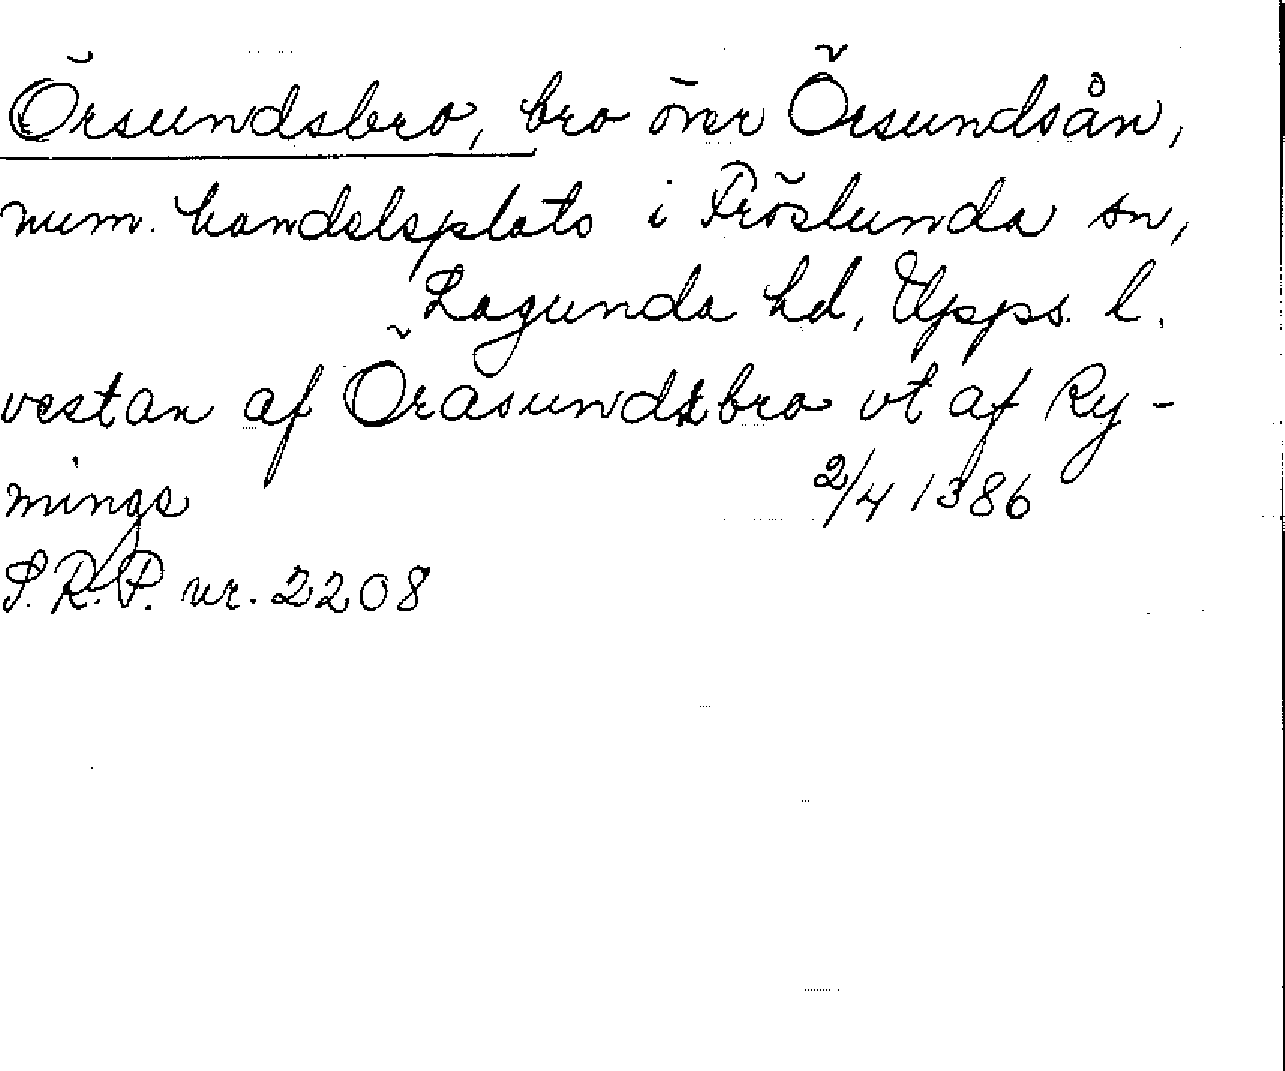 Örsundsbro, bro över Örsundsån,
num. handelsplats i Fröslunda sn,
Lagunda hd, Upps. l.
vestan af Örasundzbro vt af Ry-
minge
2/4 1386
S.R.P. nr. 2208